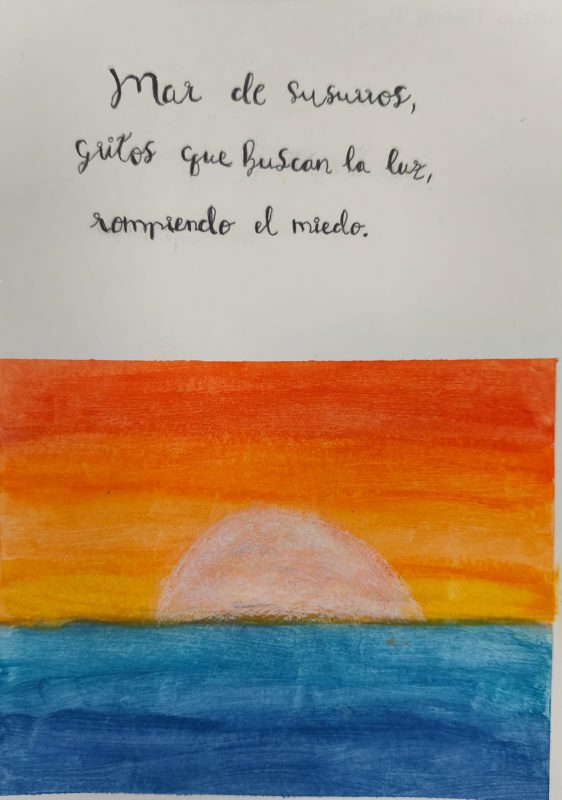 Mar de susurros,
gritos que Buscan la luz,
rompiendo el miedo.